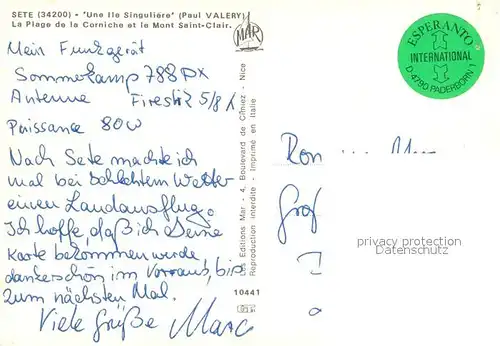 SETE (34200) - "Une Ile Singulière" (Paul VALERY)
La Plage de la Corniche et le Mont Saint-Clair.
MAR
ESPERANTO
INTERNATIONAL
D-4790 PADERBORN 1
Mein Funkgerät
Sommerkamp 788 DX
Antenne Firestik 5/8 λ
Puissance 80W
Nach Sete machte ich
mal bei schlechtem Wetter
einen Landausflug.
Ich hoffe, daß ich Deine
Karte bekommen werde,
dankeschön im Vorraus, bis
zum nächsten Mal.
Viele Grüße Marc
Les Editions Mar - 4, Boulevard de Cimiez - Nice
Reproduction interdite - Imprimé en Italie
10441
Ron
Graf
privacy protection
Datenschutz